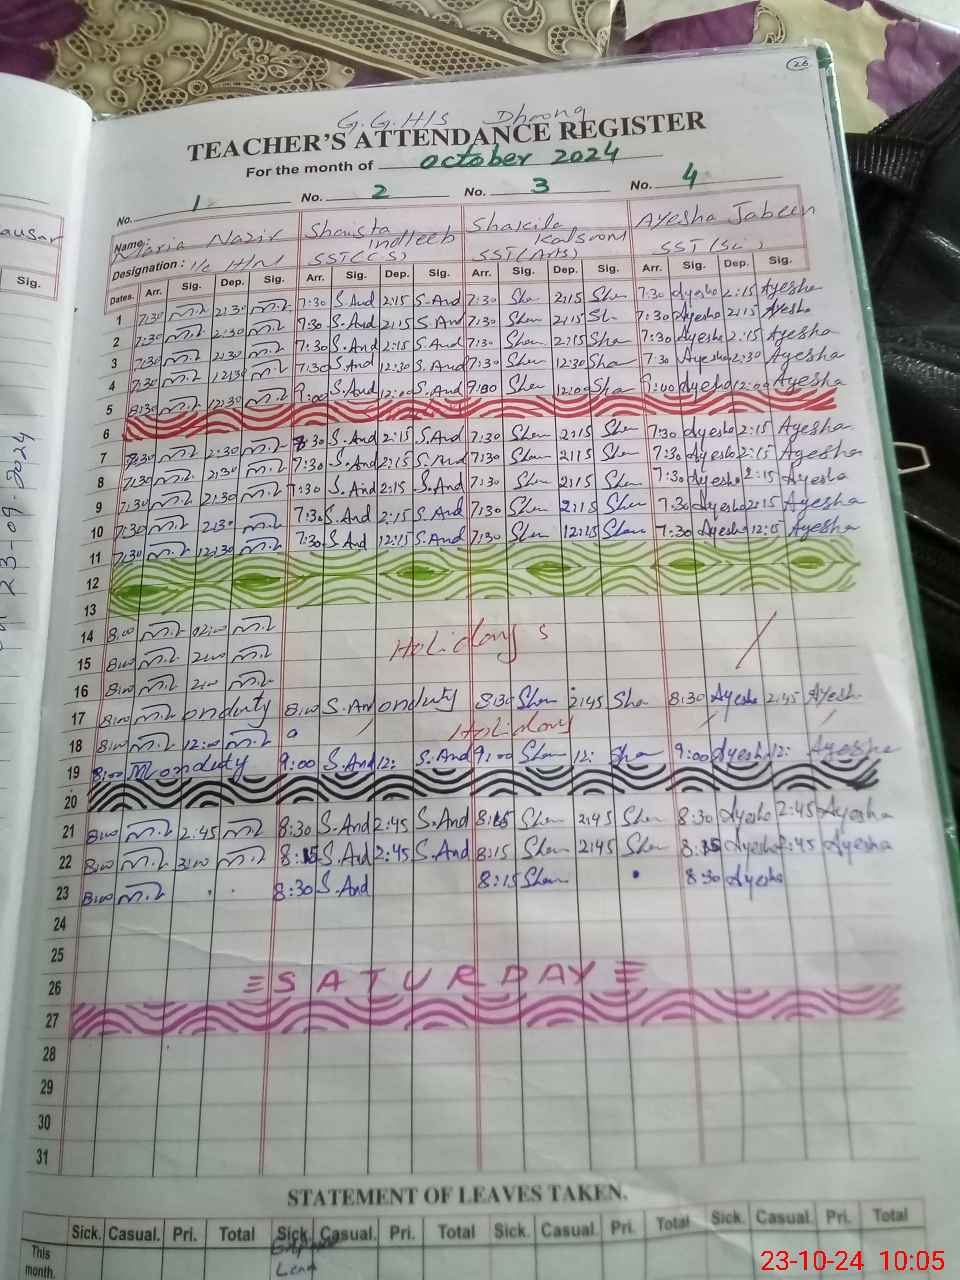 26
G.G.H/S Dhoong
TEACHER'S ATTENDANCE REGISTER
For the month of October 2024
No. 1 No. 2 No. 3 No. 4
Name: Maria Nazir Shaista Indleeb Shakila Kalsoom Ayesha Jabeen
Designation: I/C H/M SST(CS) SST(Arts) SST(Sc)
Dates. Arr. Sig. Dep. Sig. Arr. Sig. Dep. Sig. Arr. Sig. Dep. Sig. Arr. Sig. Dep. Sig.
1 7:30 2:30 7:30 S.And 2:15 S.And 7:30 Sha 2:15 Sha 7:30 Ayesha 2:15 Ayesha
2 7:30 2:30 7:30 S.And 2:15 S.And 7:30 Sha 2:15 Sh 7:30 Ayesha 2:15 Ayesha
3 7:30 2:30 7:30 S.And 2:15 S.And 7:30 Sha 2:15 Sha 7:30 Ayesha 2:15 Ayesha
4 7:30 12:30 7:30 S.And 12:30 S.And 7:30 Sha 12:30 Sha 7:30 Ayesha 2:30 Ayesha
5 8:30 12:30 9:00 S.And 12:00 S.And 9:00 Sha 12:00 Sha 9:00 Ayesha 12:00 Ayesha
6
7 7:30 2:30 7:30 S.And 2:15 S.And 7:30 Sha 2:15 Sha 7:30 Ayesha 2:15 Ayesha
8 7:30 2:30 7:30 S.And 2:15 S.And 7:30 Sha 2:15 Sha 7:30 Ayesha 2:15 Ayesha
9 7:30 2:30 7:30 S.And 2:15 S.And 7:30 Sha 2:15 Sha 7:30 Ayesha 2:15 Ayesha
10 7:30 2:30 7:30 S.And 2:15 S.And 7:30 Sha 2:15 Sha 7:30 Ayesha 2:15 Ayesha
11 7:30 12:30 7:30 S.And 12:15 S.And 7:30 Sha 12:15 Sha 7:30 Ayesha 12:15 Ayesha
12
13
14 8:00 02:00
Holidays
15 8:00 2:00
16 8:00 2:00
17 8:00 onduty 8:00 S.And onduty 8:30 Sha 2:45 Sha 8:30 Ayesha 2:45 Ayesh
18 8:00 12:00 Holidays
19 8:00 onduty 9:00 S.And 12: S.And 9:00 Sha 12: Sha 9:00 Ayesha 12: Ayesha
20
21 8:00 2:45 8:30 S.And 2:45 S.And 8:15 Sha 2:45 Sha 8:30 Ayesha 2:45 Ayesha
22 8:00 3:00 8:15 S.And 2:45 S.And 8:15 Sha 2:45 Sha 8:15 Ayesha 2:45 Ayesha
23 8:00 8:30 S.And 8:15 Sha 8:30 Ayesha
24
25
26 SATURDAY
27
28
29
30
31
STATEMENT OF LEAVES TAKEN.
Sick. Casual. Pri. Total Sick. Casual. Pri. Total Sick. Casual. Pri. Total Sick. Casual. Pri. Total
This month.
ausar
Sig.
23-09-2024
23-10-24 10:05